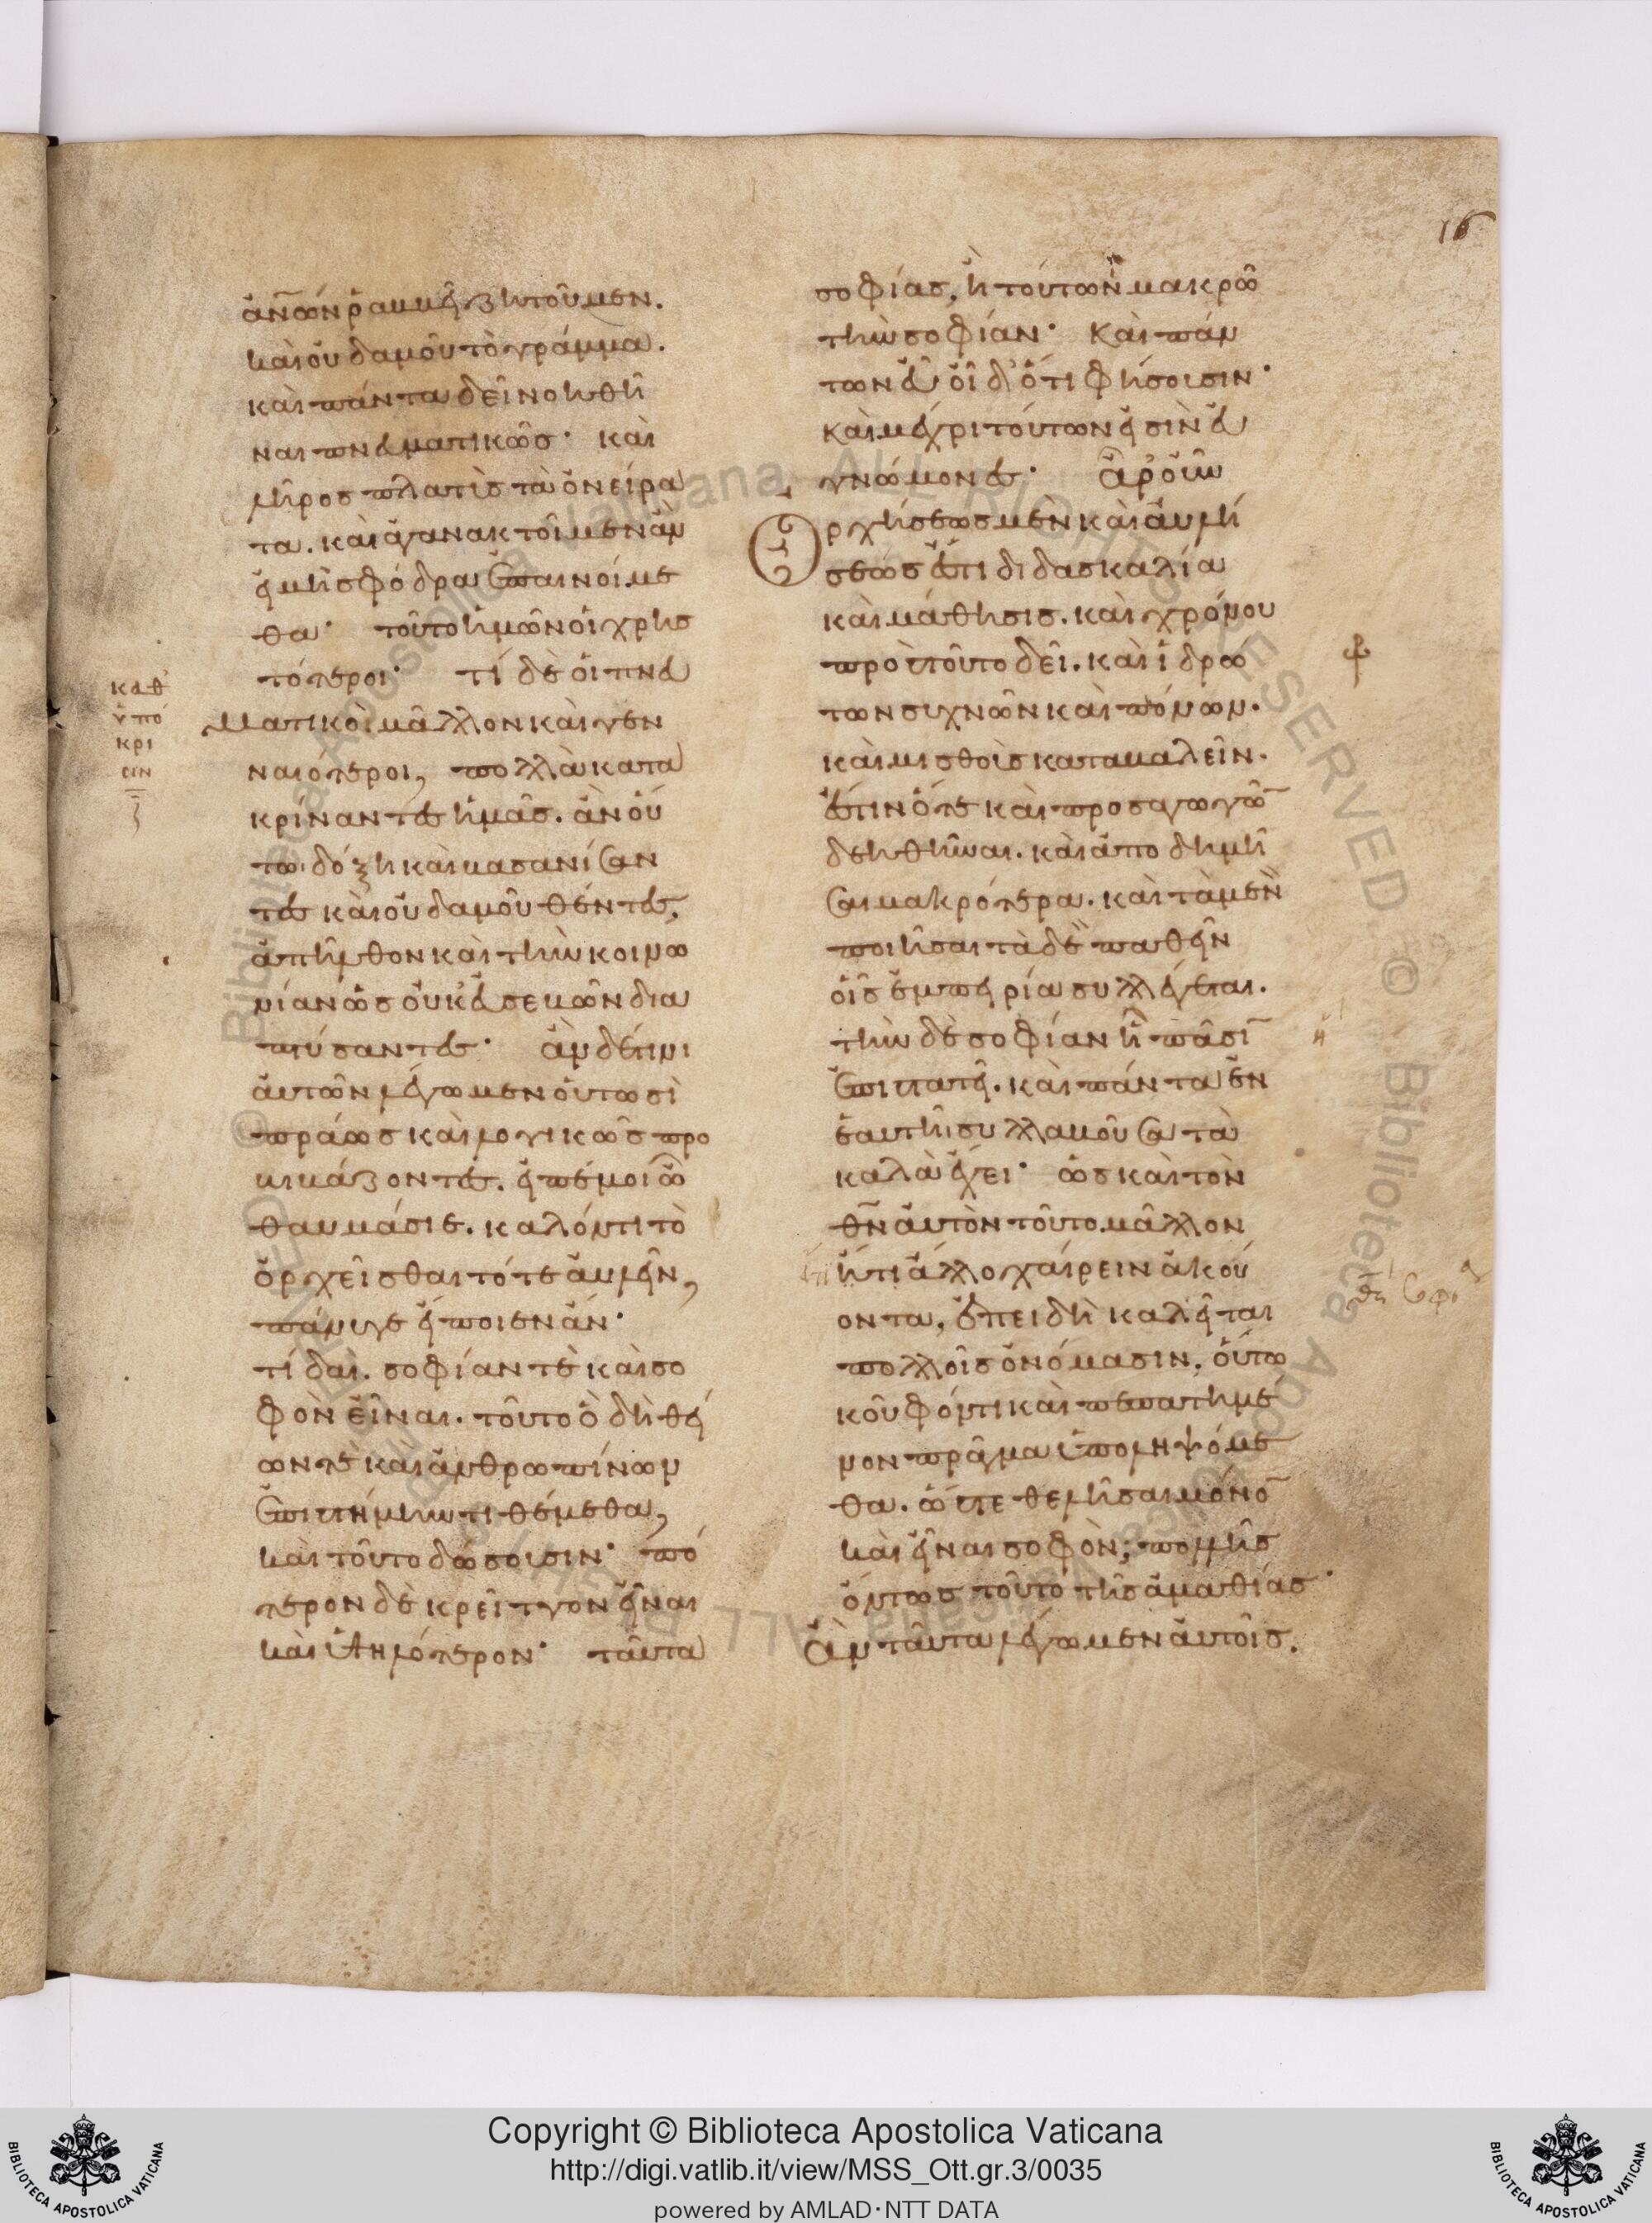 16
ἀν̅ων ῥάμμει ζητοῦμεν.
καὶ οὐδαμοῦ τὸ γράμμα.
καὶ πάντα δεῖ νοηθῆ
ναι πνευματικῶς· καὶ
λῆρος πλατὺς τὰ ὀνείρα
τα. καὶ ἀγανακτοῖμεν ἂν
εἰ μὴ σφόδρα ἐπαινοίμε
θα· τοῦτο ἡμῶν οἱ χρησ
τότεροι· τί δὲ οἱ πνευ
ματικοὶ μᾶλλον καὶ γεν
ναιότεροι, πολλὰ κατα
κρίναντες ἡμᾶς. ἂν οὕ
τω δόξη καὶ βασανίσαν
τες καὶ οὐδαμοῦ θέντες,
ἀπῆλθον καὶ τὴν κοινω
νίαν ὡς οὐκ εὐσεβῶν δια
πτύσαντες· ἂν δέ τινι
αὐτῶν λέγωμεν οὑτωσὶ
πράως καὶ λογικῶς προ
βιβάζοντες. εἰπέ μοι ὦ
θαυμάσιε. καλόν τι τὸ
ὀρχεῖσθαι τό τε αὐλεῖν,
πάνυ γε εἴποιεν ἄν·
τί δαί. σοφίαν τὲ καὶ σο
φὸν εἶναι. τοῦτο ὃ δὴ θεί
ων τὲ καὶ ἀνθρωπίνων
ἐπιστήμην τιθέμεθα,
καὶ τοῦτο δώσουσιν· πό
τερον δὲ κρεῖττον εἶναι
καὶ ὑψηλότερον· ταῦτα
καθ
ὑπό
κρι
σιν
σοφίας, ἢ τούτων μακρῶ
τὴν σοφίαν· καὶ πάν
των εὖ οἶδ' ὅτι φήσουσιν·
καὶ μέχρι τούτων εἰσὶν εὐ
γνώμονες· ἆρ' οὖν
ὀρχήσεως μὲν καὶ αὐλή
σεώς ἐστι διδασκαλία
καὶ μάθησις. καὶ χρόνου
πρὸς τοῦτο δεῖ. καὶ ἱδρώ
των συχνῶν καὶ πόνων.
καὶ μισθοὺς καταβαλεῖν.
ἔστιν ὅτε καὶ προσαγωγῶν
δεηθῆναι. καὶ ἀποδημῆ
σαι μακρότερα. καὶ τὰ μὲν
ποιῆσαι τὰ δὲ παθεῖν
οἷς ἐμπειρία συλλέγεται.
τὴν δὲ σοφίαν ἣ πᾶσιν
ἐπιστατεῖ. καὶ πάντα ἐν
ἑαυτῆ συλλαβοῦσα τὰ
καλὰ ἔχει· ὡς καὶ τὸν
θν̅ αὐτὸν τοῦτο μᾶλλον
ἤ τι ἄλλο χαίρειν ἀκού
οντα, ἐπειδὴ καλεῖται
πολλοῖς ὀνόμασιν, οὕτω
κοῦφόν τι καὶ πεπατημέ
νον πρᾶγμα ὑποληψόμε
θα. ὥστε θελῆσαι μόνον
καὶ εἶναι σοφὸν; πολλῆς
ὄντως τοῦτο τῆς ἀμαθίας·
Ἂν ταῦτα λέγωμεν αὐτοῖς.
Copyright © Biblioteca Apostolica Vaticana
http://digi.vatlib.it/view/MSS_Ott.gr.3/0035
powered by AMLAD·NTT DATA
BIBLIOTECA APOSTOLICA VATICANA
BIBLIOTECA APOSTOLICA VATICANA